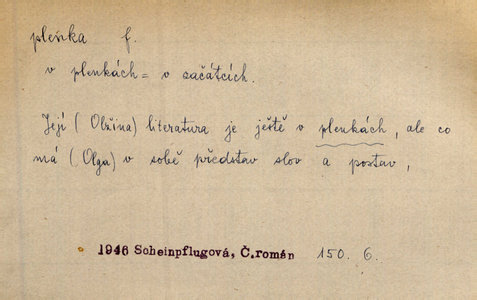 plenka f.
v plenkách = v začátcích.
Její (Olžina) literatura je ještě v plenkách, ale co
má (Olga) v sobě představ slov a postav,
1946 Scheinpflugová, Č.román 150. 6.